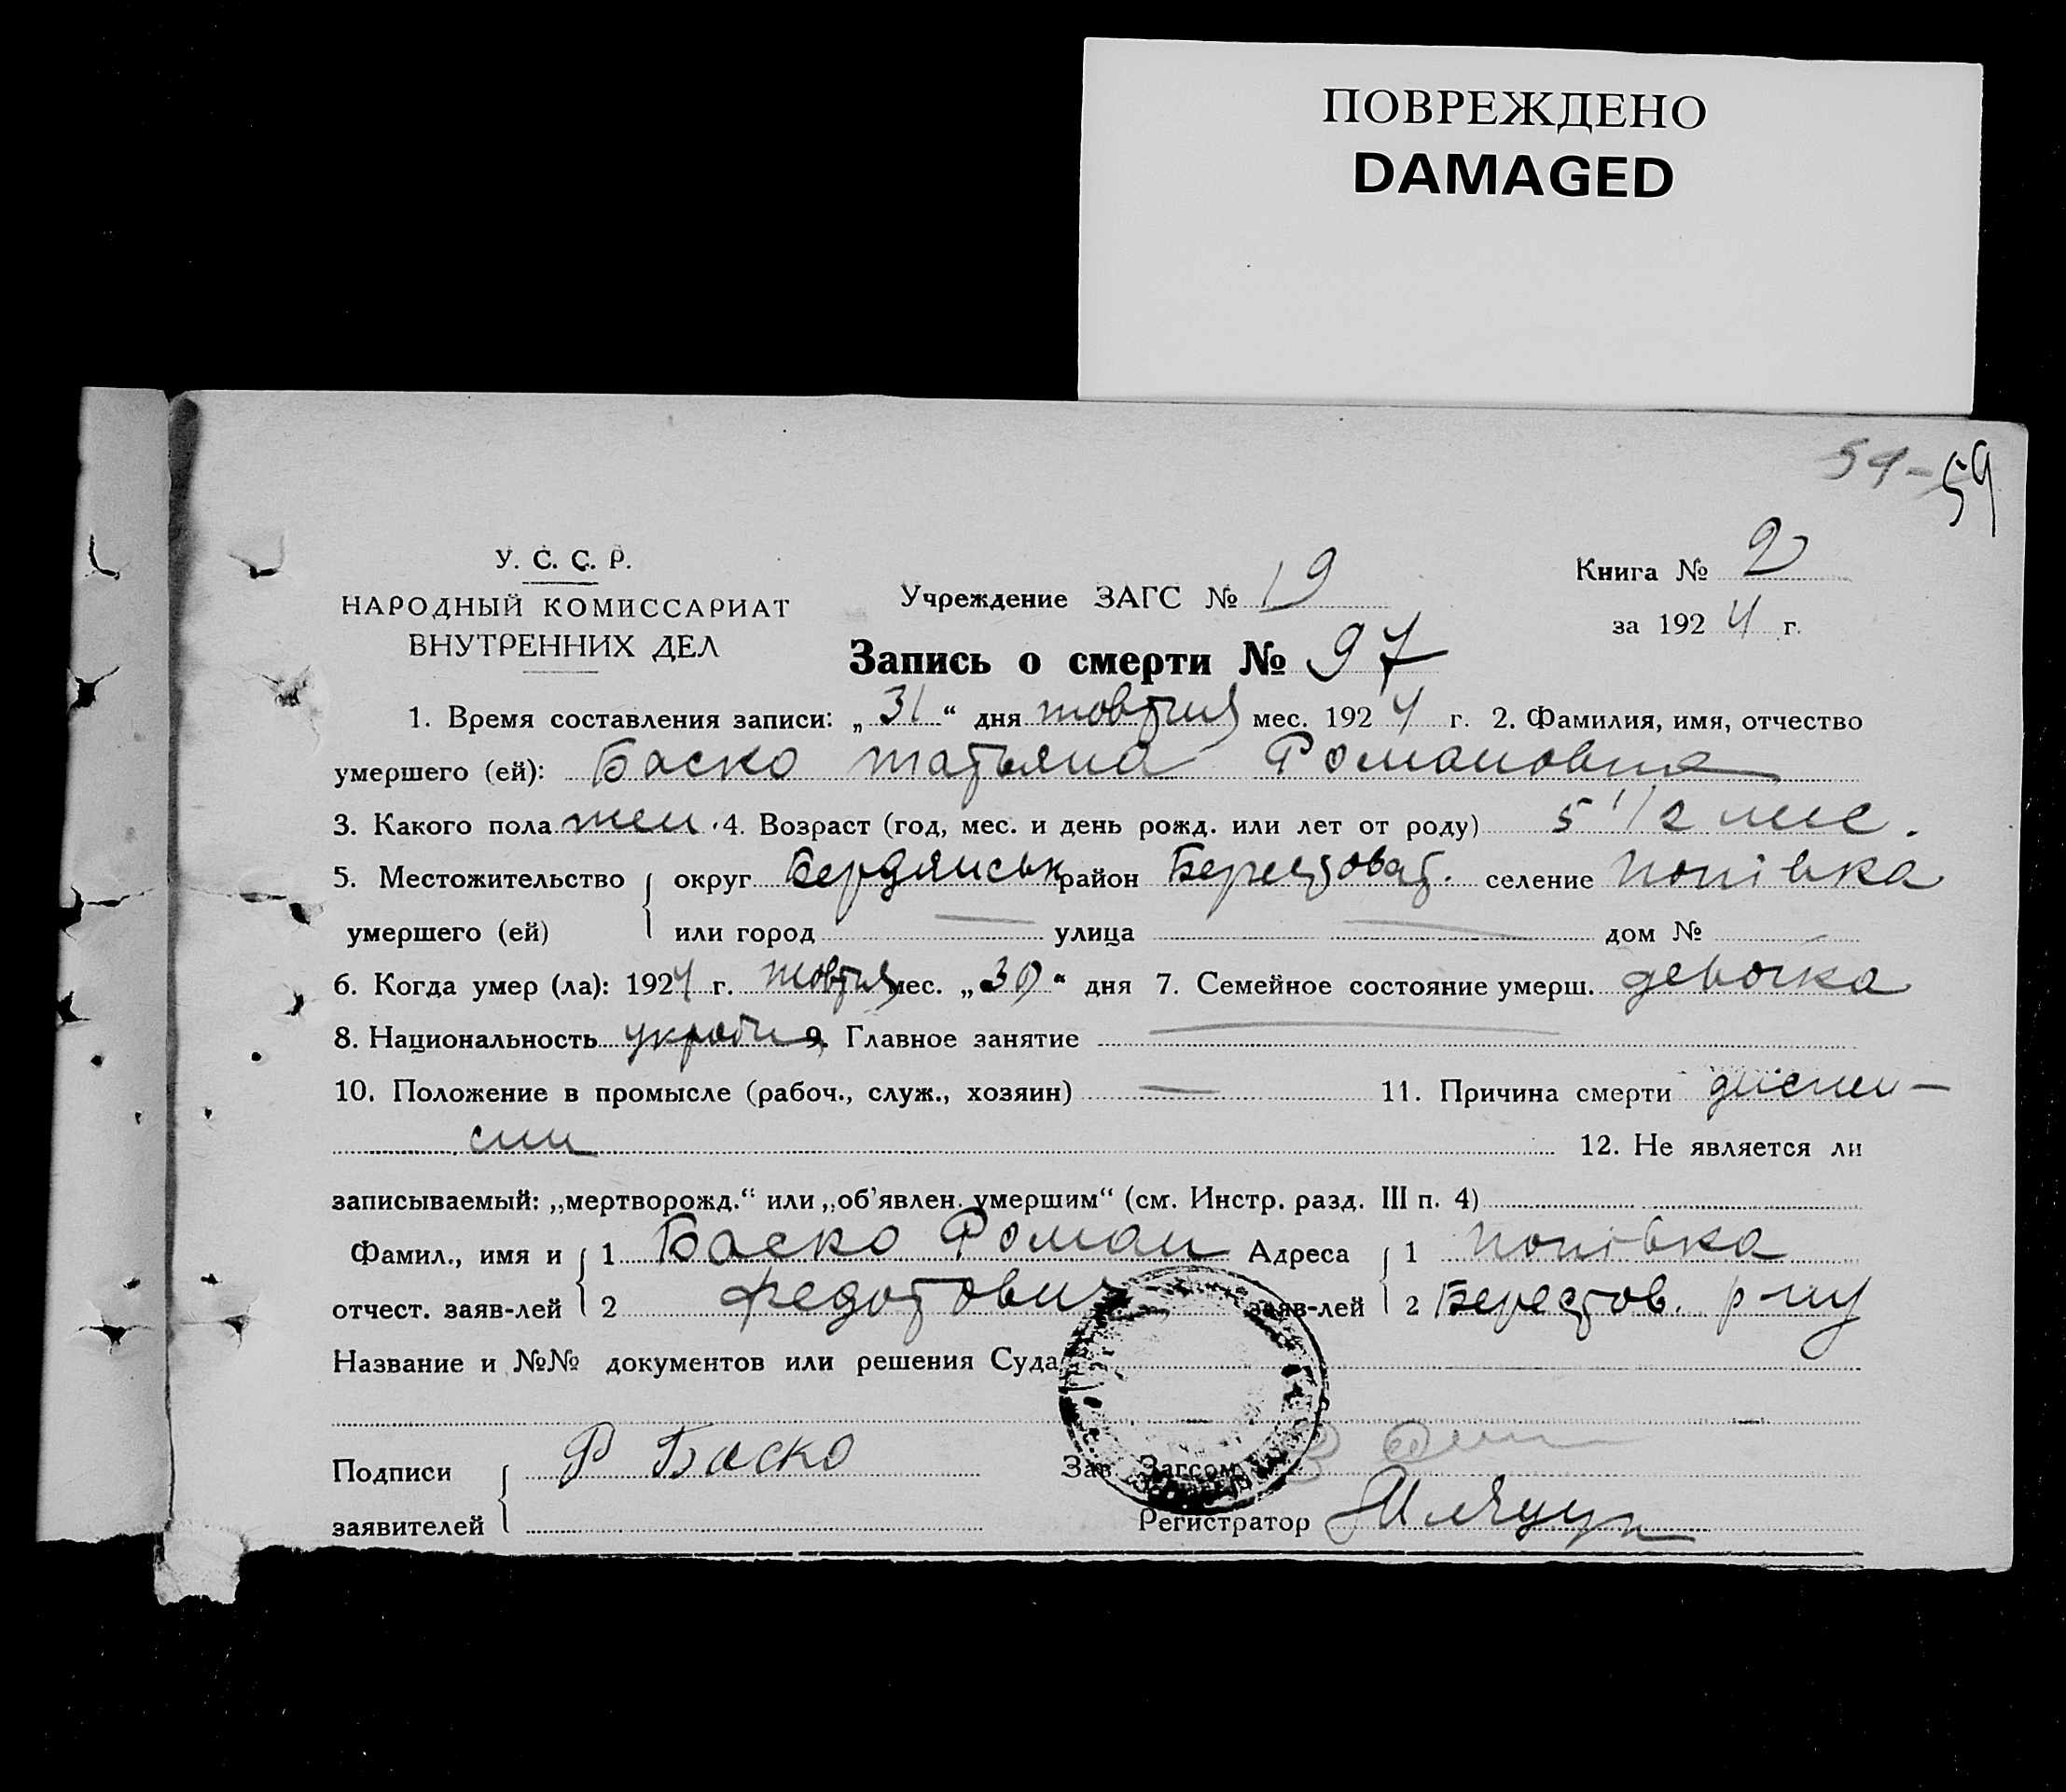 ПОВРЕЖДЕНО
DAMAGED
54-59
У. С. С. Р.
НАРОДНЫЙ КОМИССАРИАТ
ВНУТРЕННИХ ДЕЛ
Учреждение ЗАГС № 19
Книга № 2
за 1924 г.
Запись о смерти № 97
1. Время составления записи: „31“ дня жовтня мес. 1924 г. 2. Фамилия, имя, отчество
умершего (ей): Баско Татьяна Романовна
3. Какого пола жен. 4. Возраст (год, мес. и день рожд. или лет от роду) 5 1/2 мес.
5. Местожительство округ Бердянськ район Берестоват. селение Попівка
умершего (ей) или город — улица — дом № —
6. Когда умер (ла): 1924 г. жовтня мес. „30“ дня 7. Семейное состояние умерш. девочка
8. Национальность 9. Главное занятие —
10. Положение в промысле (рабоч., служ., хозяин) — 11. Причина смерти диспеп-
сии
12. Не является ли
записываемый: „мертворожд.“ или „об'явлен. умершим“ (см. Инстр. разд. III п. 4)
Фамил., имя и 1 Баско Роман Адреса 1 Попівка
отчест. заяв-лей 2 Федотович заяв-лей 2 Берестов. р-ну
Название и №№ документов или решения Суда
Подписи Р Баско Зав. Загсом
заявителей Регистратор